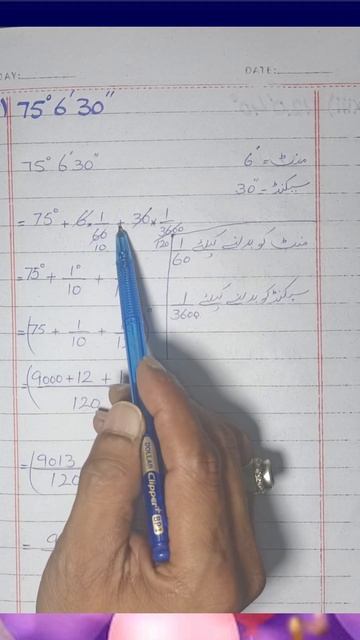 DAY:
DATE:
75° 6' 30"
75° 6' 30"
منٹ = 6'
سیکنڈ = 30"
= 75° + 6 × 1/60 + 30 × 1/3600
10
120
منٹ کو بدلنے کیلئے 1/60
= 75° + 1°/10 +
سیکنڈ کو بدلنے کیلئے 1/3600
= (75 + 1/10 +
= (9000 + 12 +
120
= (9013
120
=
DOLLAR Clipper